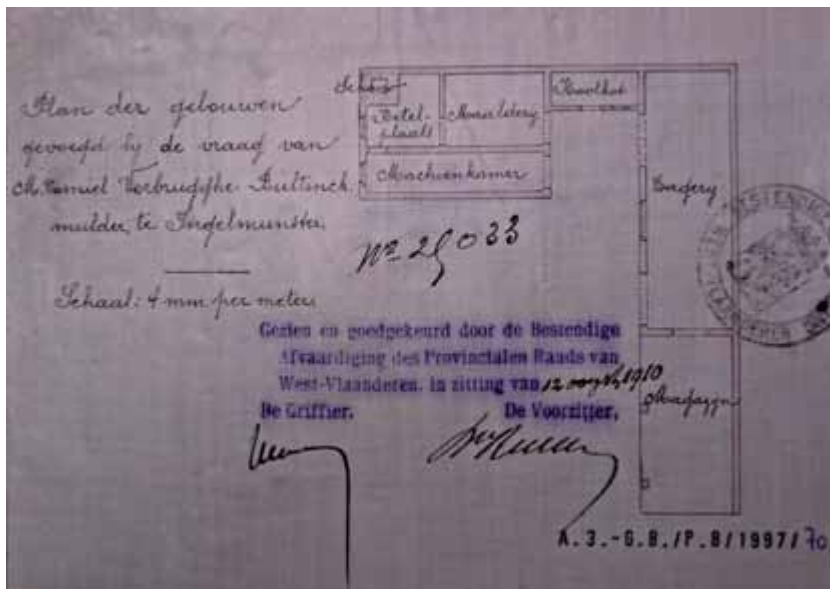 Plan der gebouwen
gevoegd bij de vraag van
M. Camiel Verbrugghe-Bultinck
mulder, te Ingelmunster.
Schaal: 4 mm per meter
Ketel-
plaats
Maalderij
Koolkot
Machienkamer
Magazijn
Nº 25033
Gezien en goedgekeurd door de Bestendige
Afvaardiging des Provincialen Raads van
West-Vlaanderen, in zitting van 12 1910
De Griffier.
De Voorzitter,
A.3.-G.B./P.B/1997/70